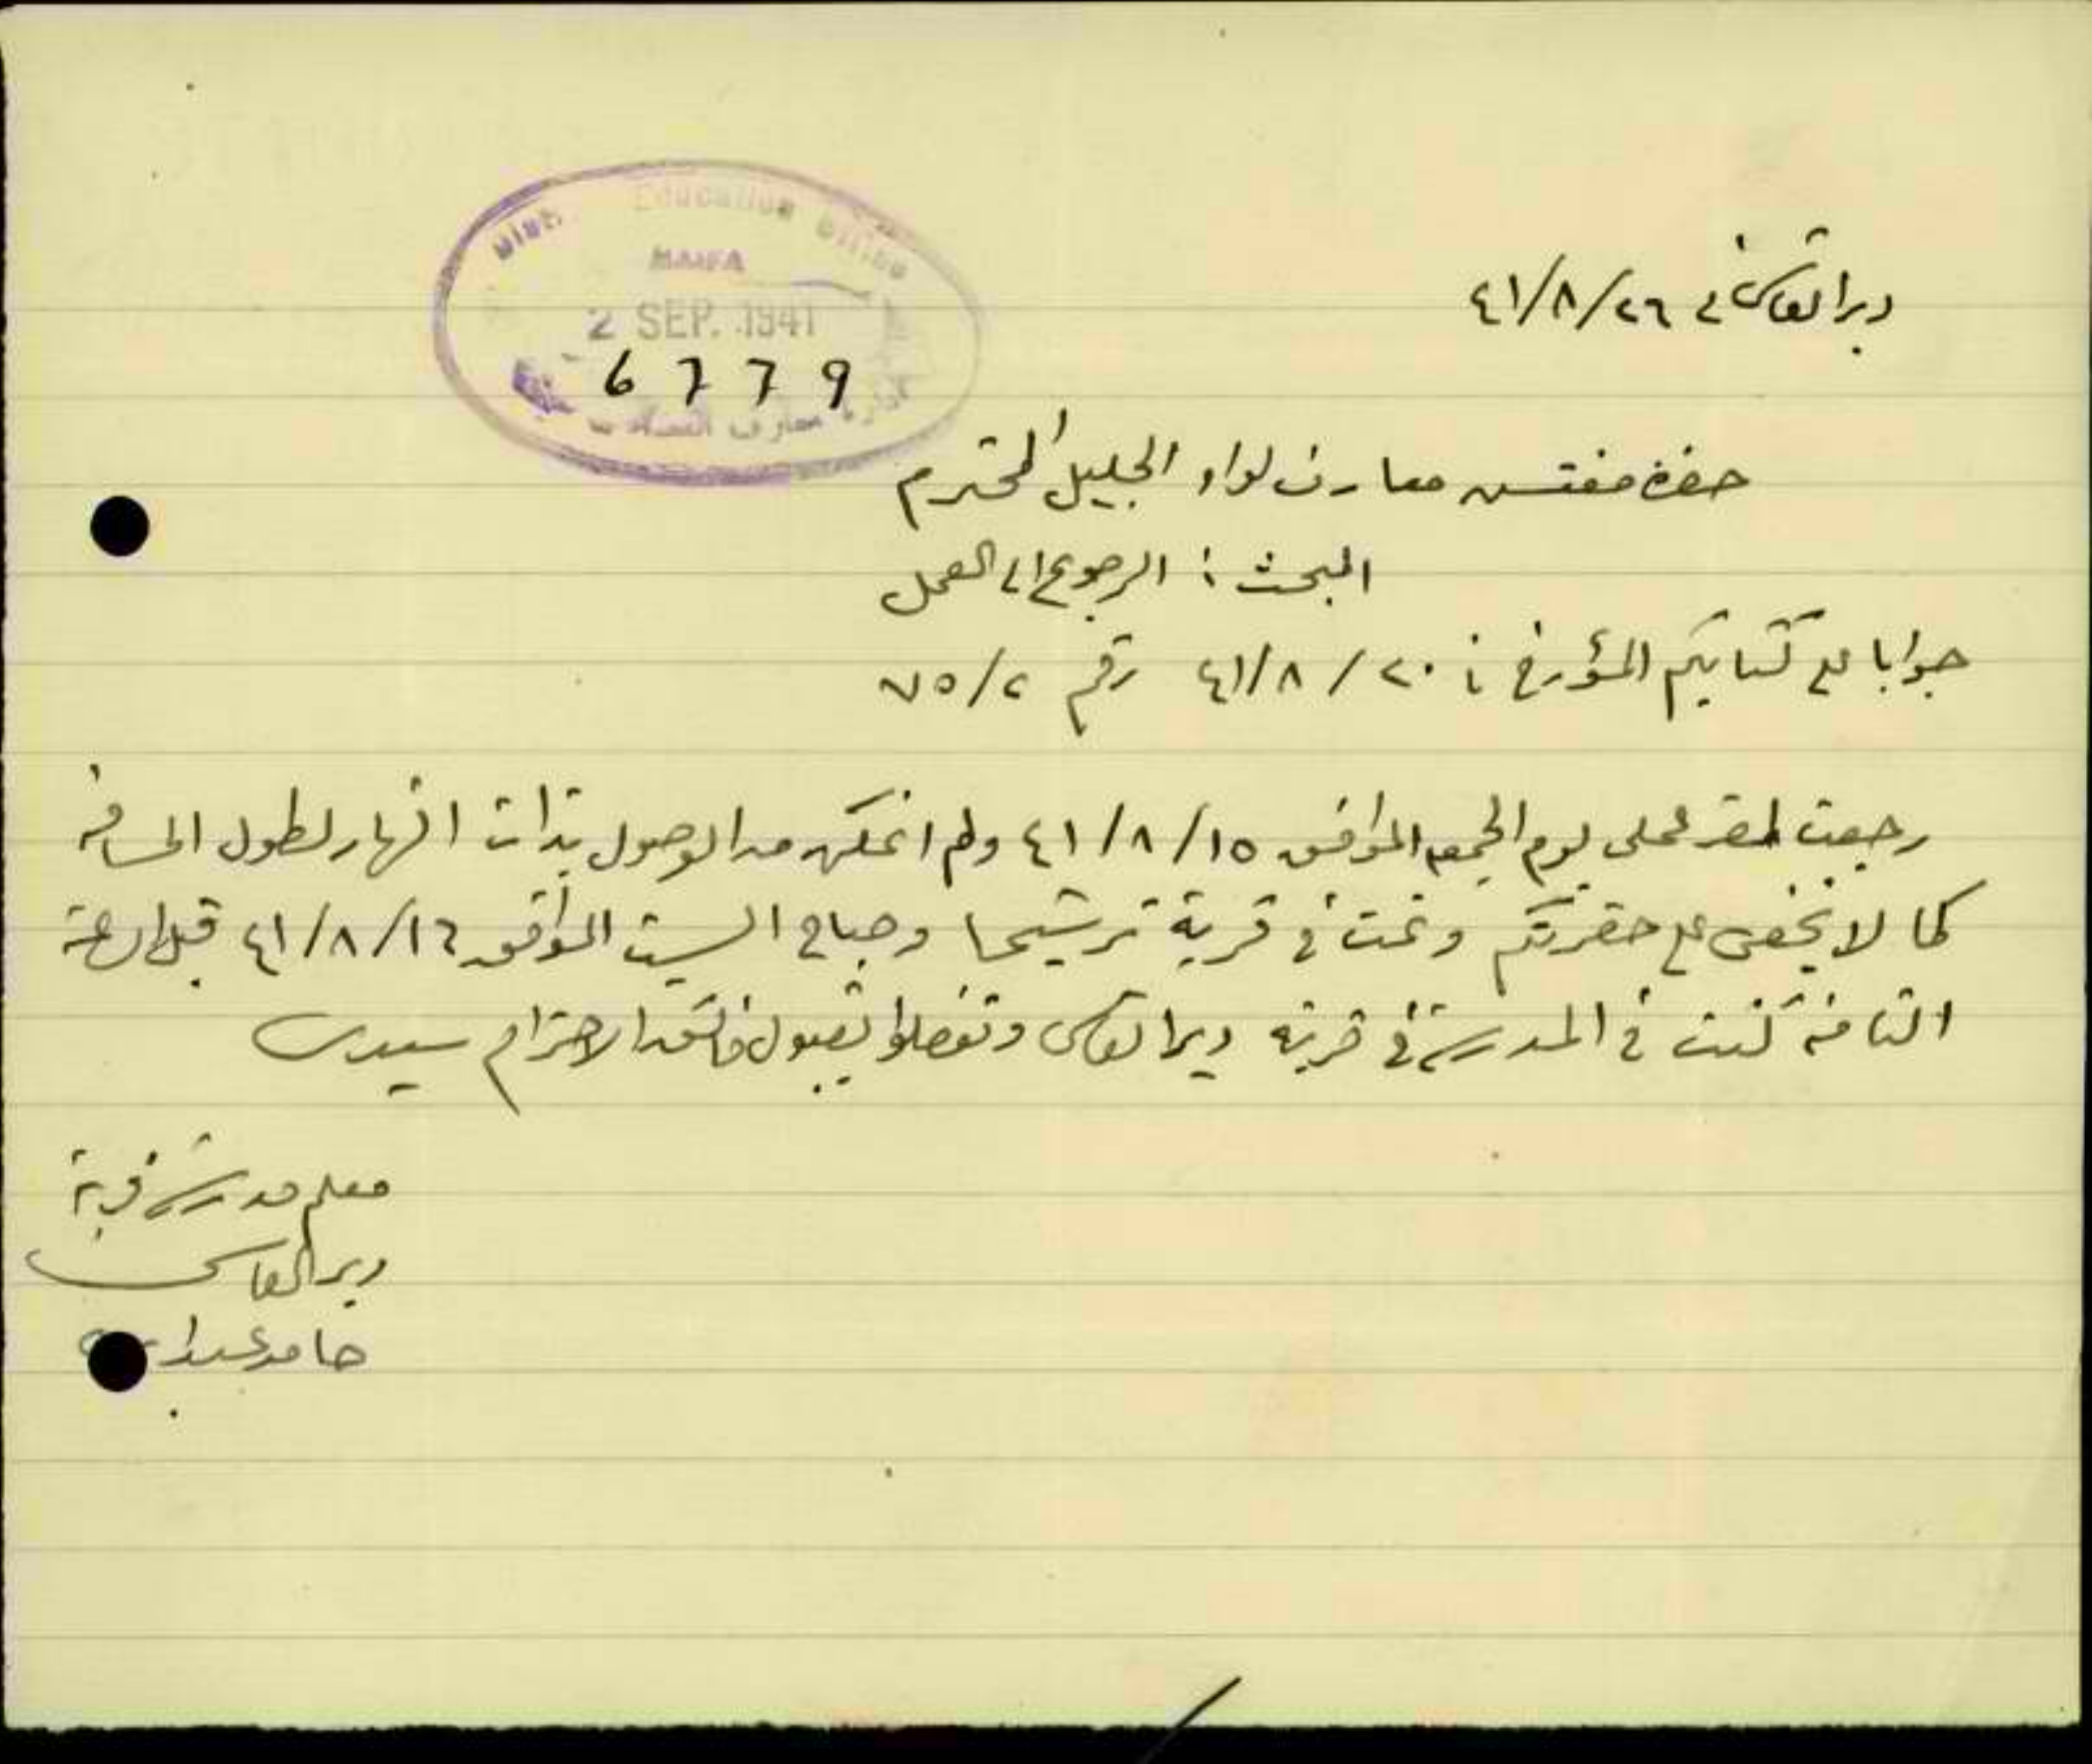 Education Office
HAIFA
2 SEP. 1941
6779
ادارة معارف
دير القاسي في ٤١/٨/٢٦
حضرة مفتش معارف لواء الجليل المحترم
البحث : الرجوع الى العمل
جوابا على كتابكم المؤرخ في ٤١/٨/٢٠ رقم ٧٥/٢
رجعت لمقر عملي يوم الجمعه الموافق ٤١/٨/١٥ ولم اتمكن من الوصول بذات النهار لطول المسافة
كما لا يخفى على حضرتكم ونمت في قرية ترشيحا وصباح السبت الموافق ٤١/٨/١٦ قبل الساعة
الثامنة كنت في المدرسة في قرية دير القاسي وتفضلوا بقبول فائق الاحترام سيدي
معلم مدرسة قرية
دير القاسي
حامد